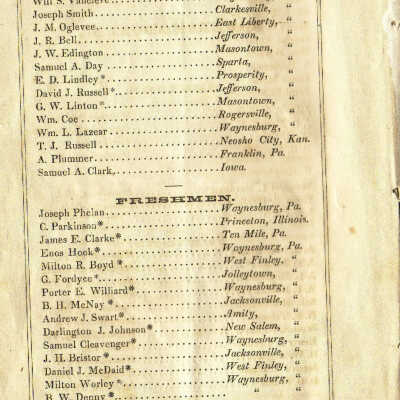 Will S. Vancleve
Joseph Smith Clarkesville, "
J. M. Oglevee East Liberty, "
J. R. Bell Jefferson, "
J. W. Edington Masontown, "
Samuel A. Day Sparta, "
E. D. Lindley* Prosperity, "
David J. Russell* Jefferson, "
G. W. Linton* Masontown, "
Wm. Coe Rogersville, "
Wm. L. Lazear Waynesburg, "
T. J. Russell Neosho City, Kan.
A. Plummer Franklin, Pa.
Samuel A. Clark, Iowa.
FRESHMEN.
Joseph Phelan Waynesburg, Pa.
C. Parkinson* Princeton, Illinois.
James E. Clarke* Ten Mile, Pa.
Enos Hook* Waynesburg, Pa.
Milton R. Boyd* West Finley, "
G. Fordyce* Jolleytown, "
Porter E. Williard* Waynesburg, "
B. H. McNay* Jacksonville, "
Andrew J. Swart* Amity, "
Darlington J. Johnson* New Salem, "
Samuel Cleavenger* Waynesburg, "
J. H. Bristor* Jacksonville, "
Daniel J. McDaid* West Finley, "
Milton Worley* Waynesburg, "
B. W. Denny* " "